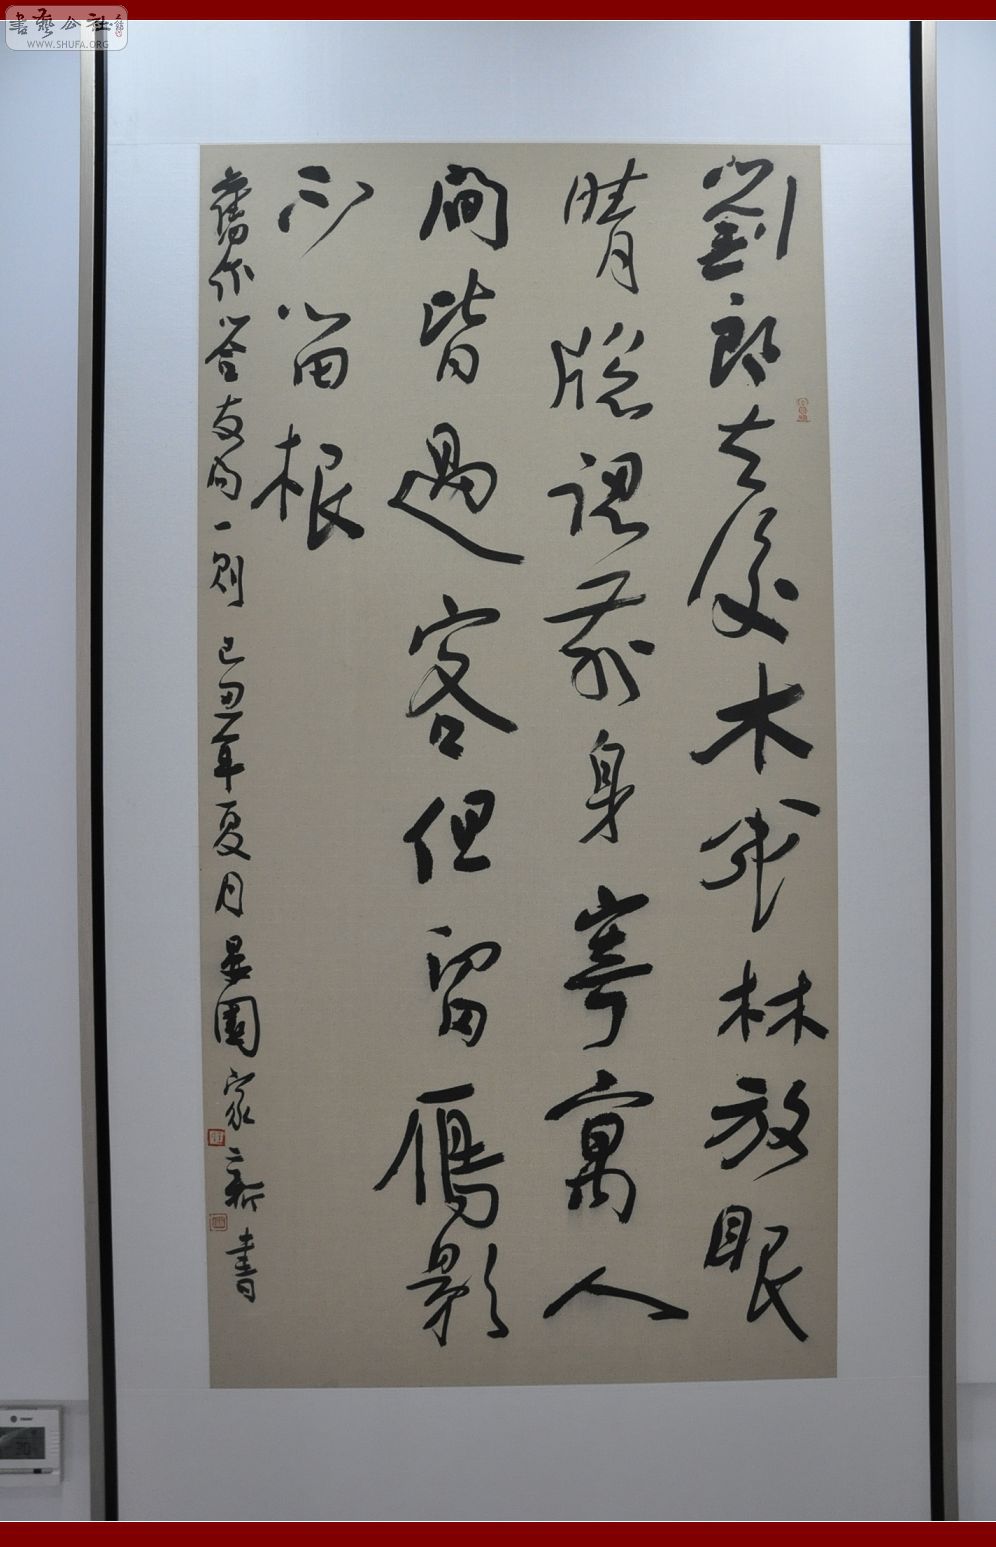 書藝公社
WWW.SHUFA.ORG
劉郎去後木成林放眼
晴牕認前身寄寓人
間皆過客但留鴈影
不留根
舊作答友问一則 己丑年夏月 園家新書